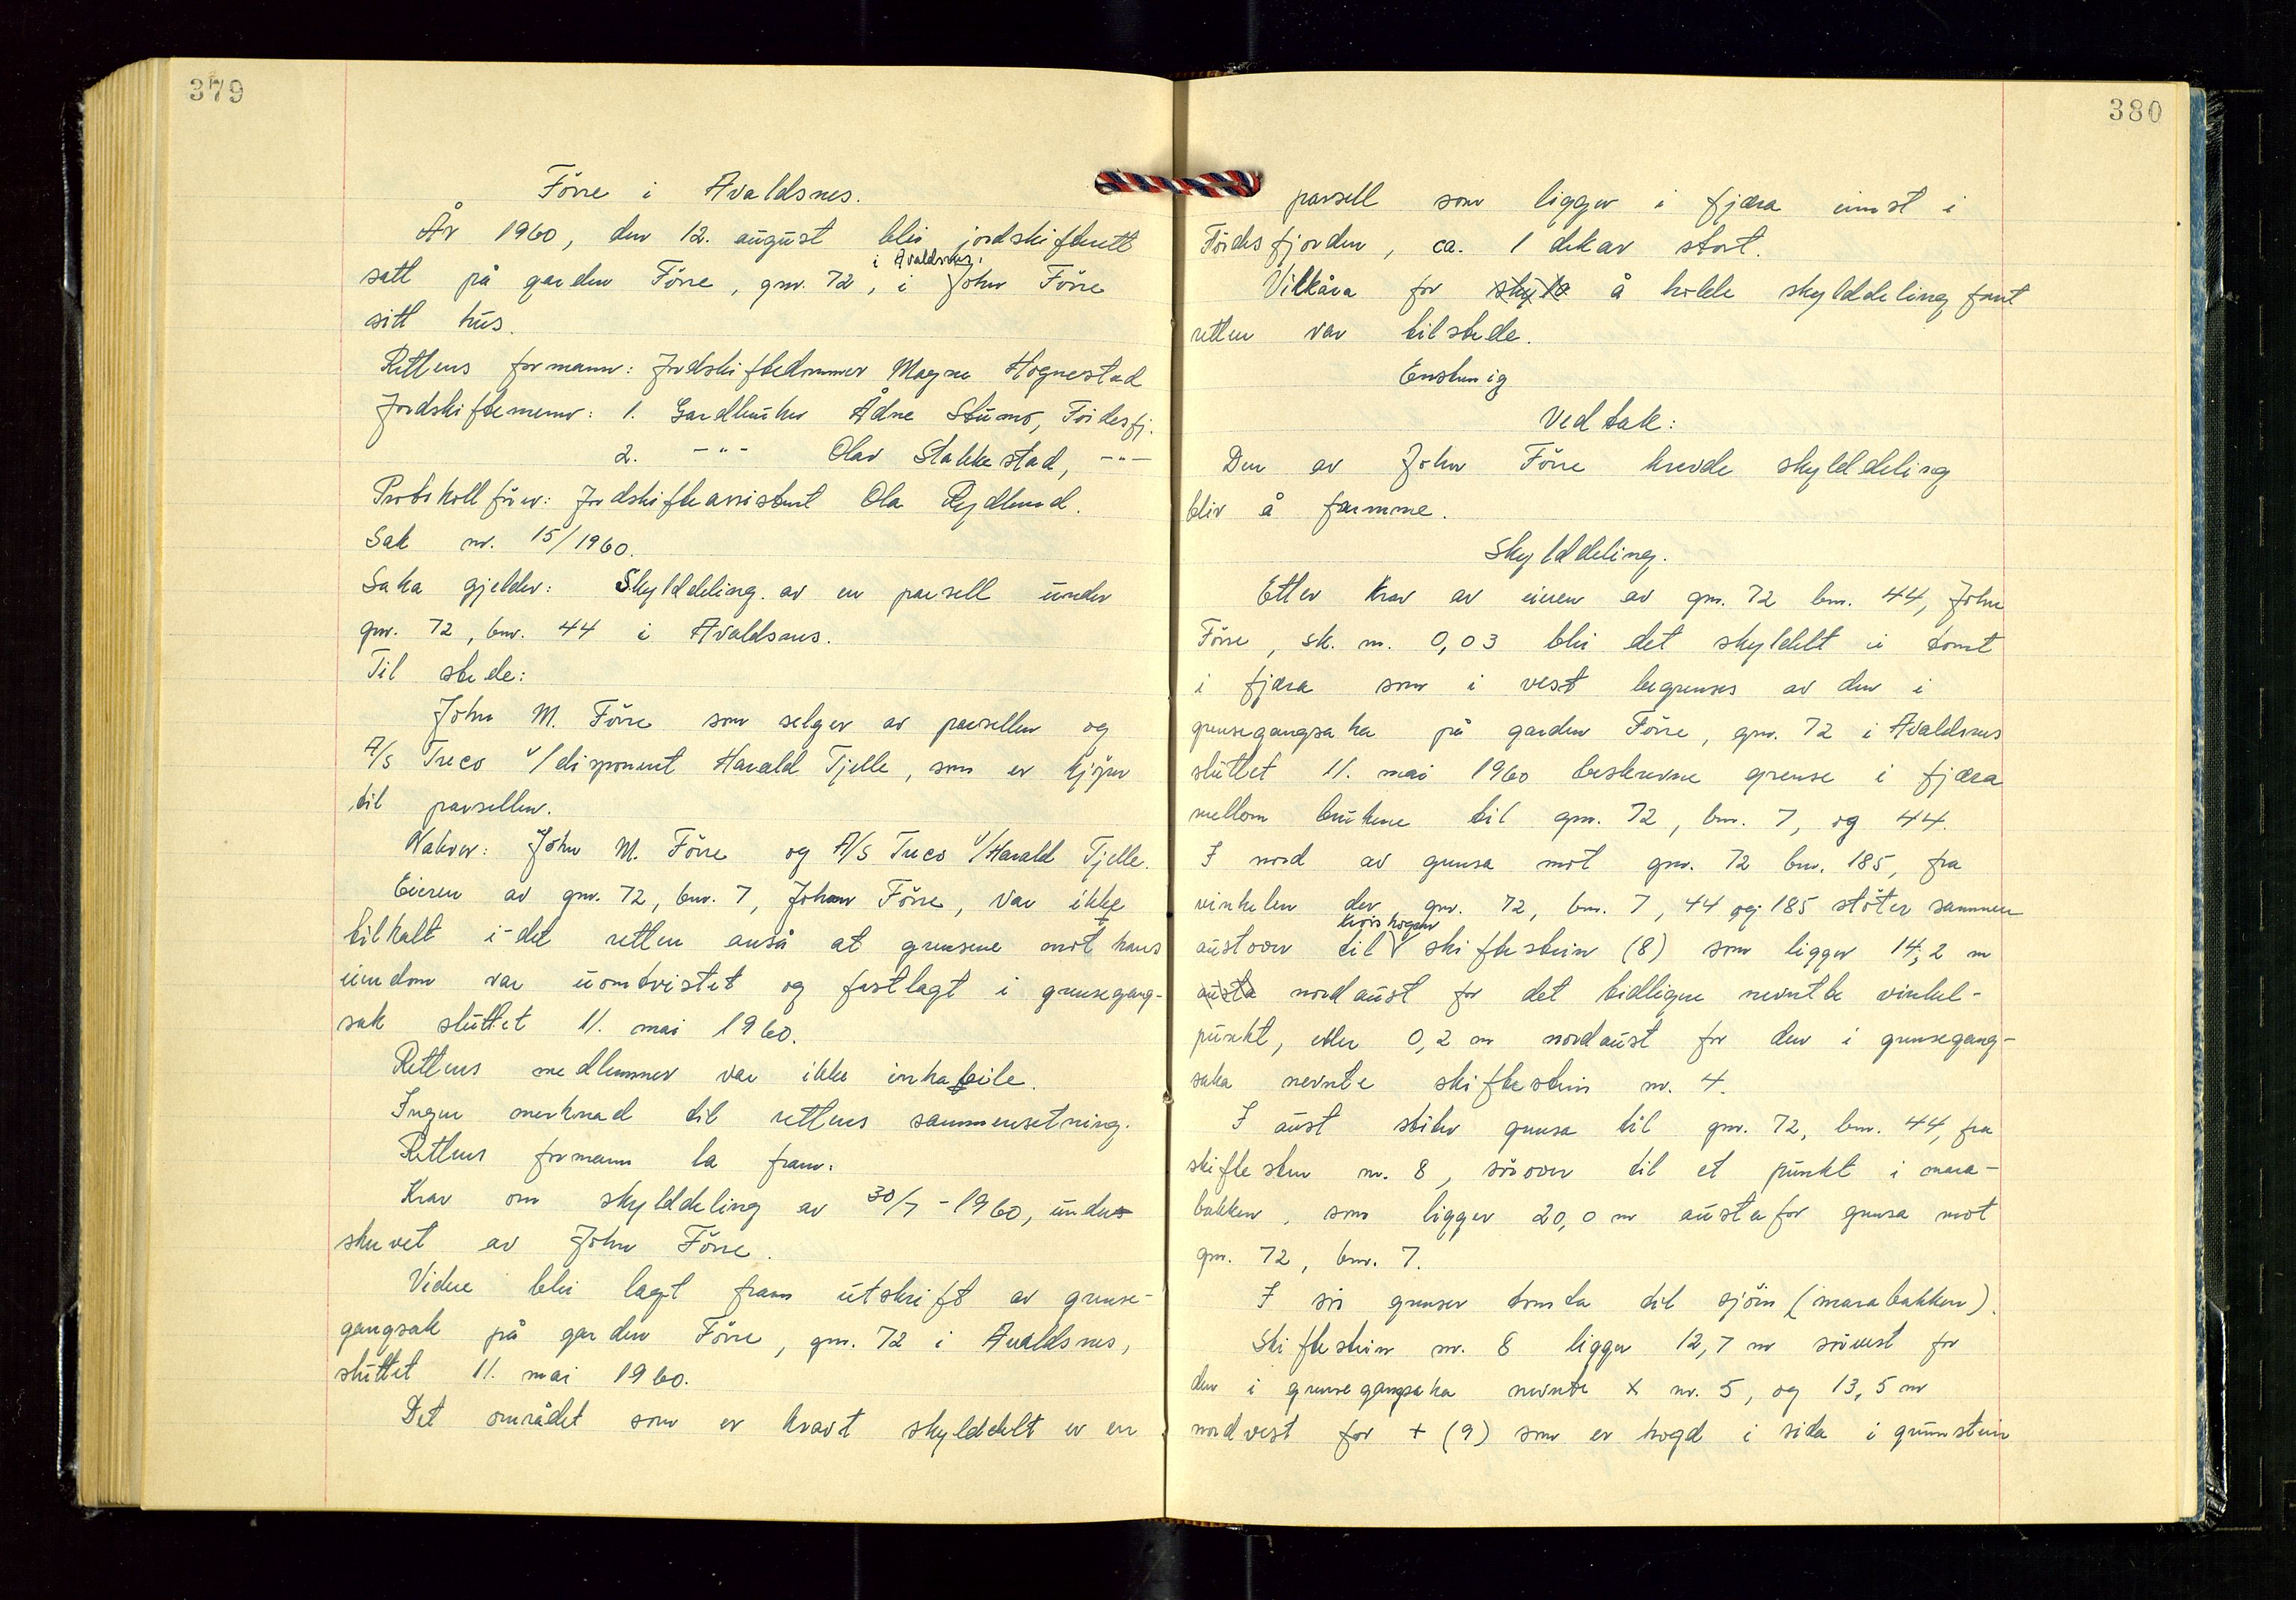 379
Förre i Avaldsnes.
År 1960, den 12. august blei jordskifterett
i Avaldsnes.
satt på garden Förre, gnr. 72, i John Förre
sitt hus.
Rettens formann: Jordskiftedommer Magne Hognestad
Jordskiftemenn: 1. Gardbruker Ådne Stumo, Fördesfj.
2. -"- Olav Stakkestad, -"-
Protokollförer: Jordskifteassistent Ola Rydlund.
Sak nr. 15/1960.
Saka gjelder: Skylddeling av en parsell under
gnr. 72, bnr. 44 i Avaldsnes.
Til stede:
John M. Förre som selger av parsellen og
A/S Treco v/disponent Harald Tjelle, som er kjöper
til parsellen.
Naboer: John M. Förre og A/S Treco v/Harald Tjelle.
Eieren av gnr. 72, bnr. 7, Johan Förre, var ikke
tilkalt i det retten anså at grensene mot hans
eiendom var uomtvistet og fastlagt i grensegang-
sak sluttet 11. mai 1960.
Rettens medlemmer var ikke inhabile.
Ingen merknad til rettens sammensetning.
Rettens formann la fram:
Krav om skylddeling av 30/7 - 1960, under
skrevet av John Förre.
Videre blei lagt fram utskrift av grense-
gangsak på garden Förre, gnr. 72 i Avaldsnes,
sluttet 11. mai 1960.
Det området som er kravt skylddelt er en
380
parsell som ligger i fjæra innst i
Fördesfjorden, ca. 1 dekar stort.
Vilkåra for å holde skylddeling fant
retten var tilstede.
Enstemig
Vedtak:
Den av John Förre krevde skylddeling
blir å fremme.
Skylddeling.
Etter krav av eieren av gnr. 72 bnr. 44, John
Förre, sk. m. 0,03 blei det skylddelt ei tomt
i fjæra som i vest begrenses av den i
grensegangsaka på garden Förre, gnr. 72 i Avaldsnes
sluttet 11. mai 1960 beskrevne grense i fjæra
mellom brukene til gnr. 72, bnr. 7, og 44.
I nord av grensa mot gnr. 72 bnr. 185, fra
vinkelen der gnr. 72, bnr. 7, 44 og 185 stöter sammen
krosshogen
austover til skiftestein (8) som ligger 14,2 m
austa nordaust for det tidligere nevnte vinkel-
punkt, eller 0,2 m nordaust for den i grensegang-
saka nevnte skiftestein nr. 4.
I aust stiker grensa til gnr. 72, bnr. 44, fra
skiftestein nr. 8, sörover til et punkt i mara-
bakken, som ligger 20,0 m austafor grensa mot
gnr. 72, bnr. 7.
I sör grenser tomta til sjöen (marabakken).
Skiftestein nr. 8 ligger 12,7 m sörvest for
den i grensegangsaka nevnte x nr. 5, og 13,5 m
nordvest for + (9) som er hogd i sida i grunnstein